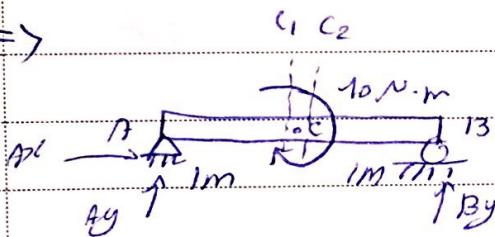 =>
C1 C2
10 N·m
A C B
Ax 1m 1m
Ay By